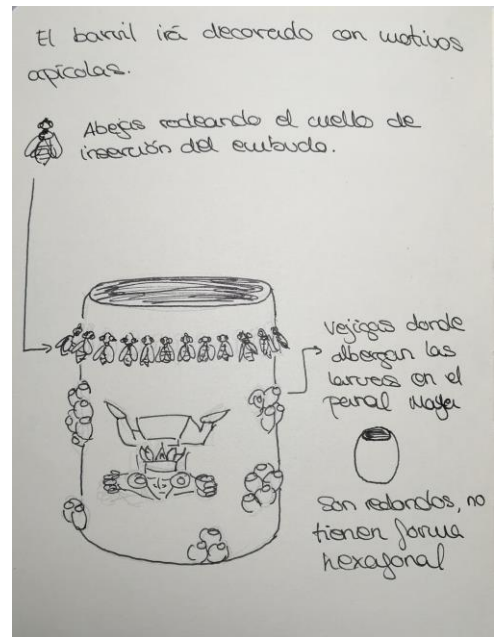 El barril irá decorado con motivos
apícolas.
Abejas rodeando el cuello de
inserción del embudo.
vejigas donde
albergan las
larvas en el
panal maya
Son redondos, no
tienen forma
hexagonal